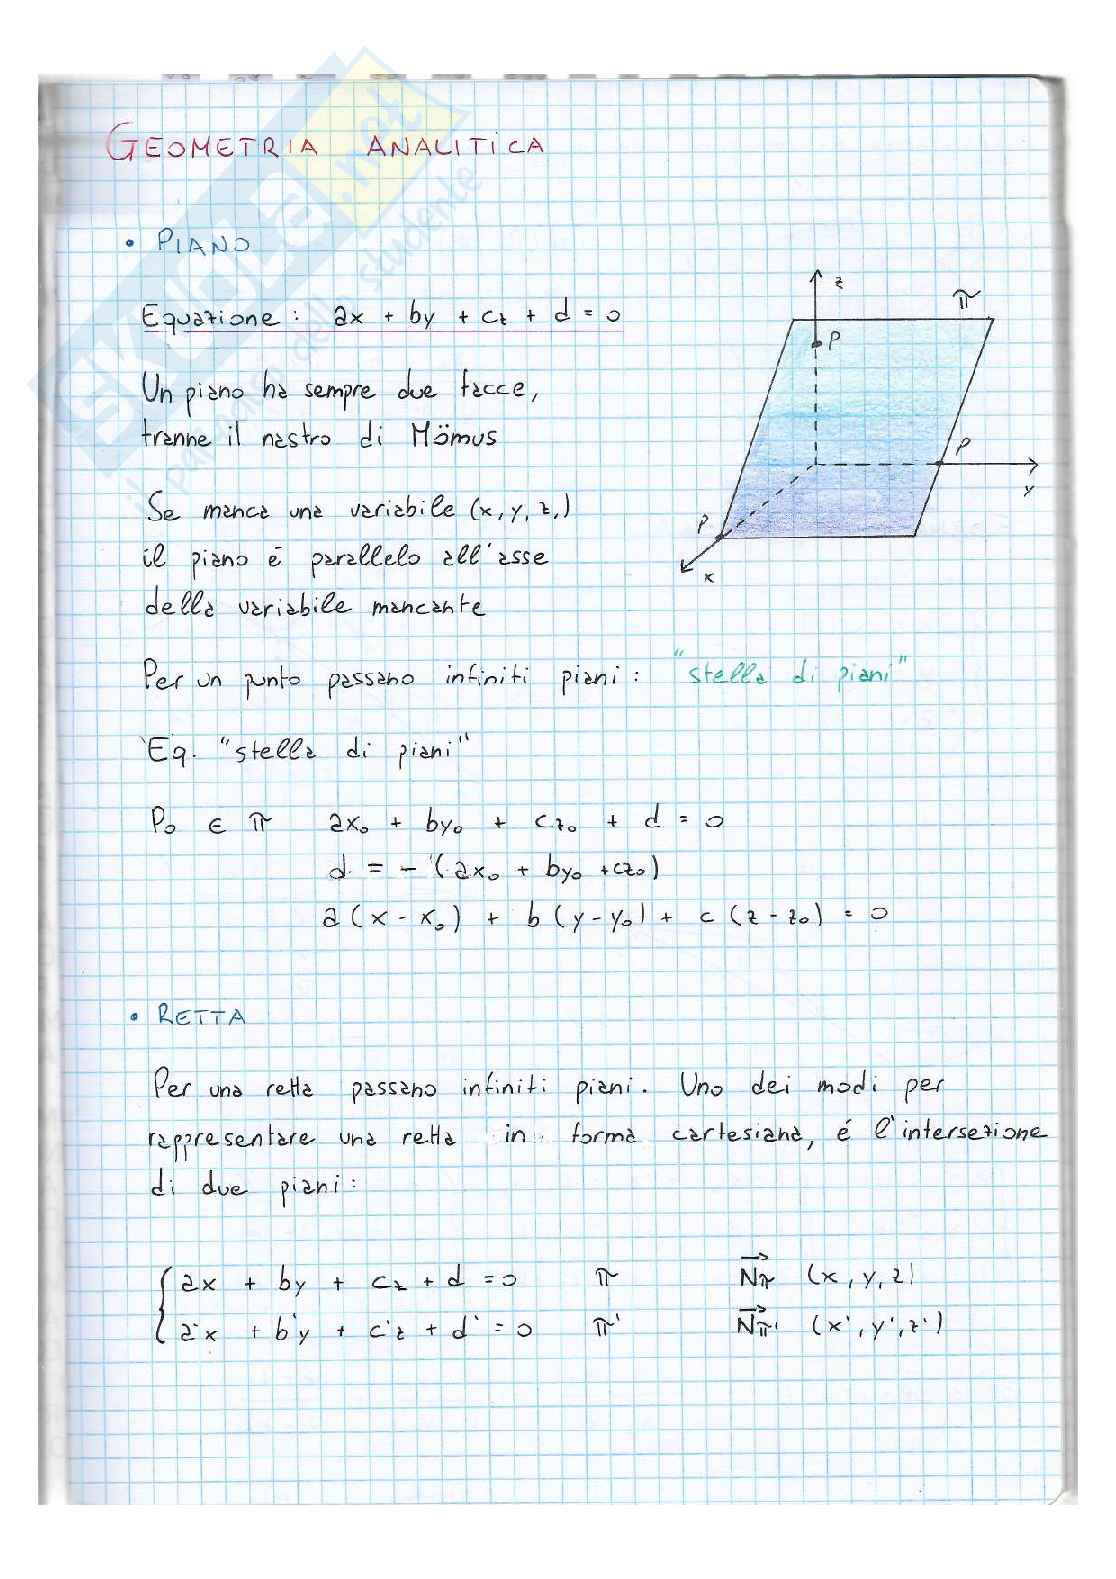 GEOMETRIA ANALITICA
• PIANO
Equazione: ax + by + cz + d = 0
Un piano ha sempre due facce,
tranne il nastro di Mömus
Se manca una variabile (x, y, z,)
il piano é parallelo all'asse
della variabile mancante
z
π
P
P
y
P
x
Per un punto passano infiniti piani: "stella di piani"
Eq. "stella di piani"
P₀ ∈ π ax₀ + by₀ + cz₀ + d = 0
d = - (ax₀ + by₀ + cz₀)
a(x - x₀) + b(y - y₀) + c(z - z₀) = 0
• RETTA
Per una retta passano infiniti piani. Uno dei modi per
rappresentare una retta in forma cartesiana, é l'intersezione
di due piani:
{ ax + by + cz + d = 0 π N⃗π (x, y, z)
{ a'x + b'y + c'z + d' = 0 π' N⃗π' (x', y', z')
SKUOLA.net
il paradiso dello studente